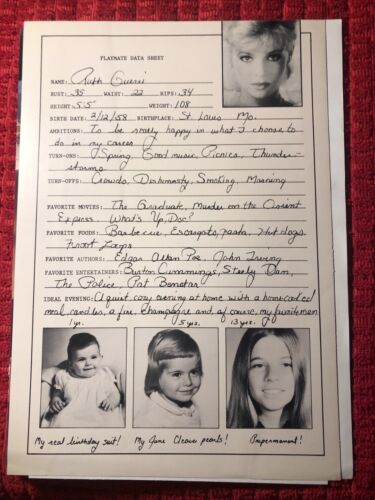 PLAYMATE DATA SHEET
NAME: Ruth Guerri
BUST: 35 WAIST: 22 HIPS: 34
HEIGHT: 5'5" WEIGHT: 108
BIRTH DATE: 2/12/58 BIRTHPLACE: St. Louis Mo.
AMBITIONS: To be really happy in what I choose to
do in my career
TURN-ONS: Spring, Good music, Picnics, Thunder-
storms
TURN-OFFS: Crowds, Dishonesty, Smoking, Morning
FAVORITE MOVIES: The Graduate, Murder on the Orient
Express, What's Up, Doc?
FAVORITE FOODS: Barbecue, Escargots, Pasta, Hot dogs
Froot Loops
FAVORITE AUTHORS: Edgar Allan Poe, John Irving
FAVORITE ENTERTAINERS: Burton Cummings, Steely Dan,
The Police, Pat Benatar
IDEAL EVENING: A quiet, cozy evening at home with a home-cooked
meal, candles, a fire, champagne and, of course, my favorite man
1 yr. 5 yrs. 13 yrs.
My real birthday suit! My June Cleaver pearls! Prepermanent!